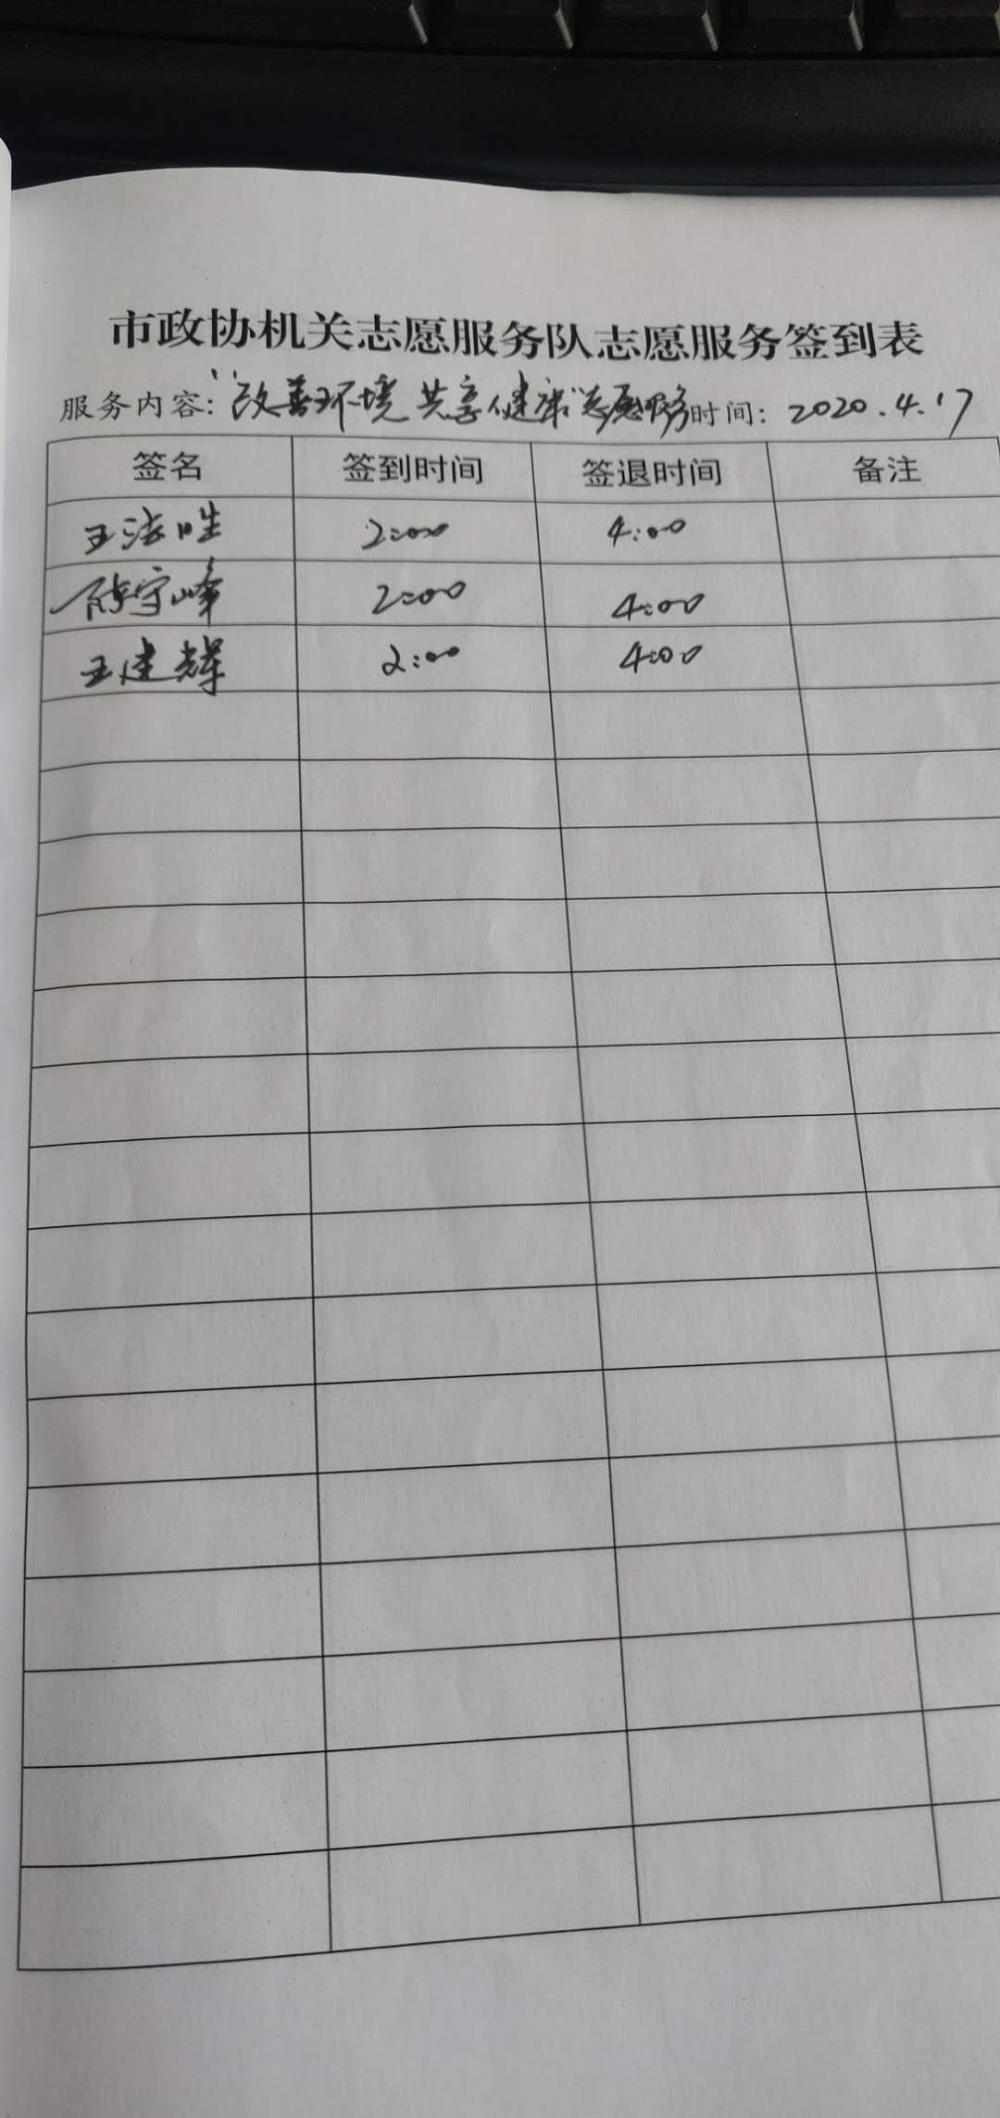 市政协机关志愿服务队志愿服务签到表
服务内容："改善环境 共享健康"志愿服务 时间：2020.4.17
签名 签到时间 签退时间 备注
王法胜 2:00 4:00
陈宇峰 2:00 4:00
王建辉 2:00 4:00